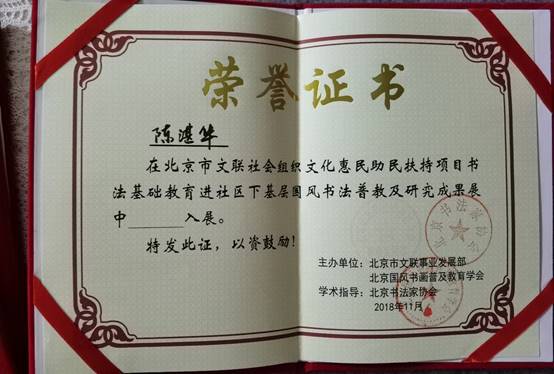 荣誉证书
陈湛华
在北京市文联社会组织文化惠民助民扶持项目书
法基础教育进社区下基层国风书法普教及研究成果展
中______入展。
特发此证，以资鼓励!
主办单位：北京市文联事业发展部
北京国风书画普及教育学会
学术指导：北京书法家协会
2018年11月
北京书法家协会